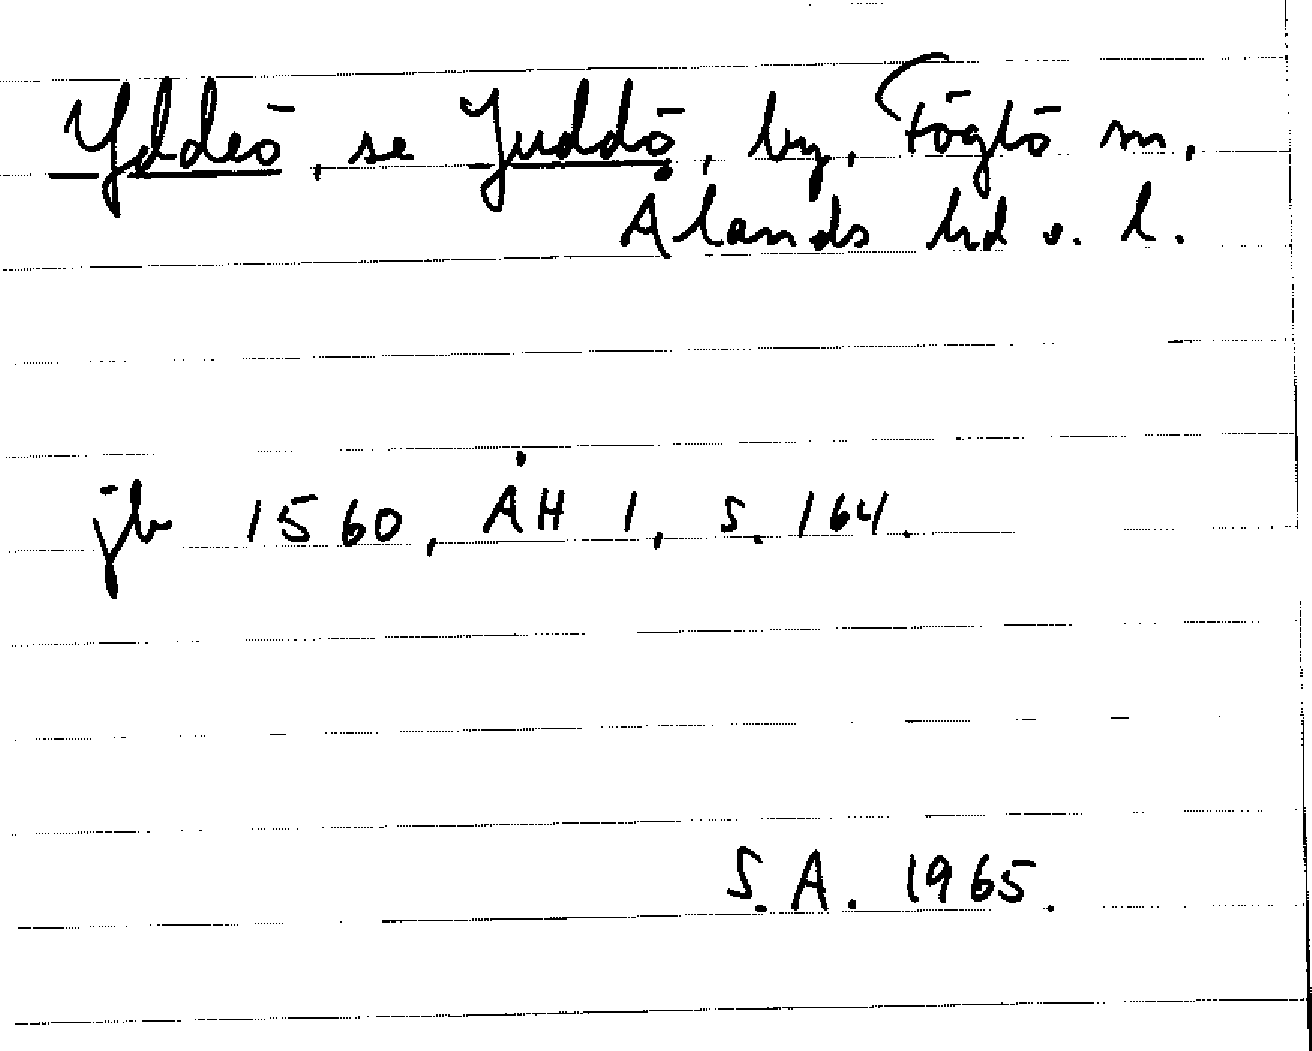 Yddeö, se Juddö, by, Föglö sn,
Ålands hd o. l.
jb 1560, ÅH 1, s. 164.
S.A. 1965.